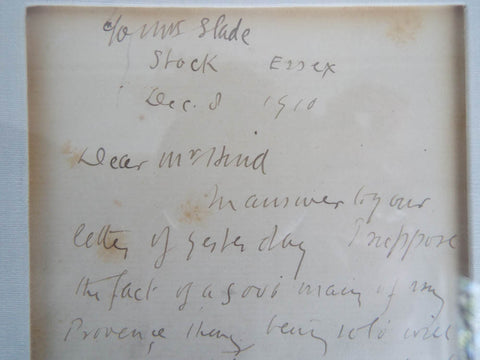 c/o Mrs Slade
Stock Essex
Dec. 8 1910
Dear Mr Hind
In answer to your
letter of yesterday I suppose
the fact of a good many of my
Provence things being sold will